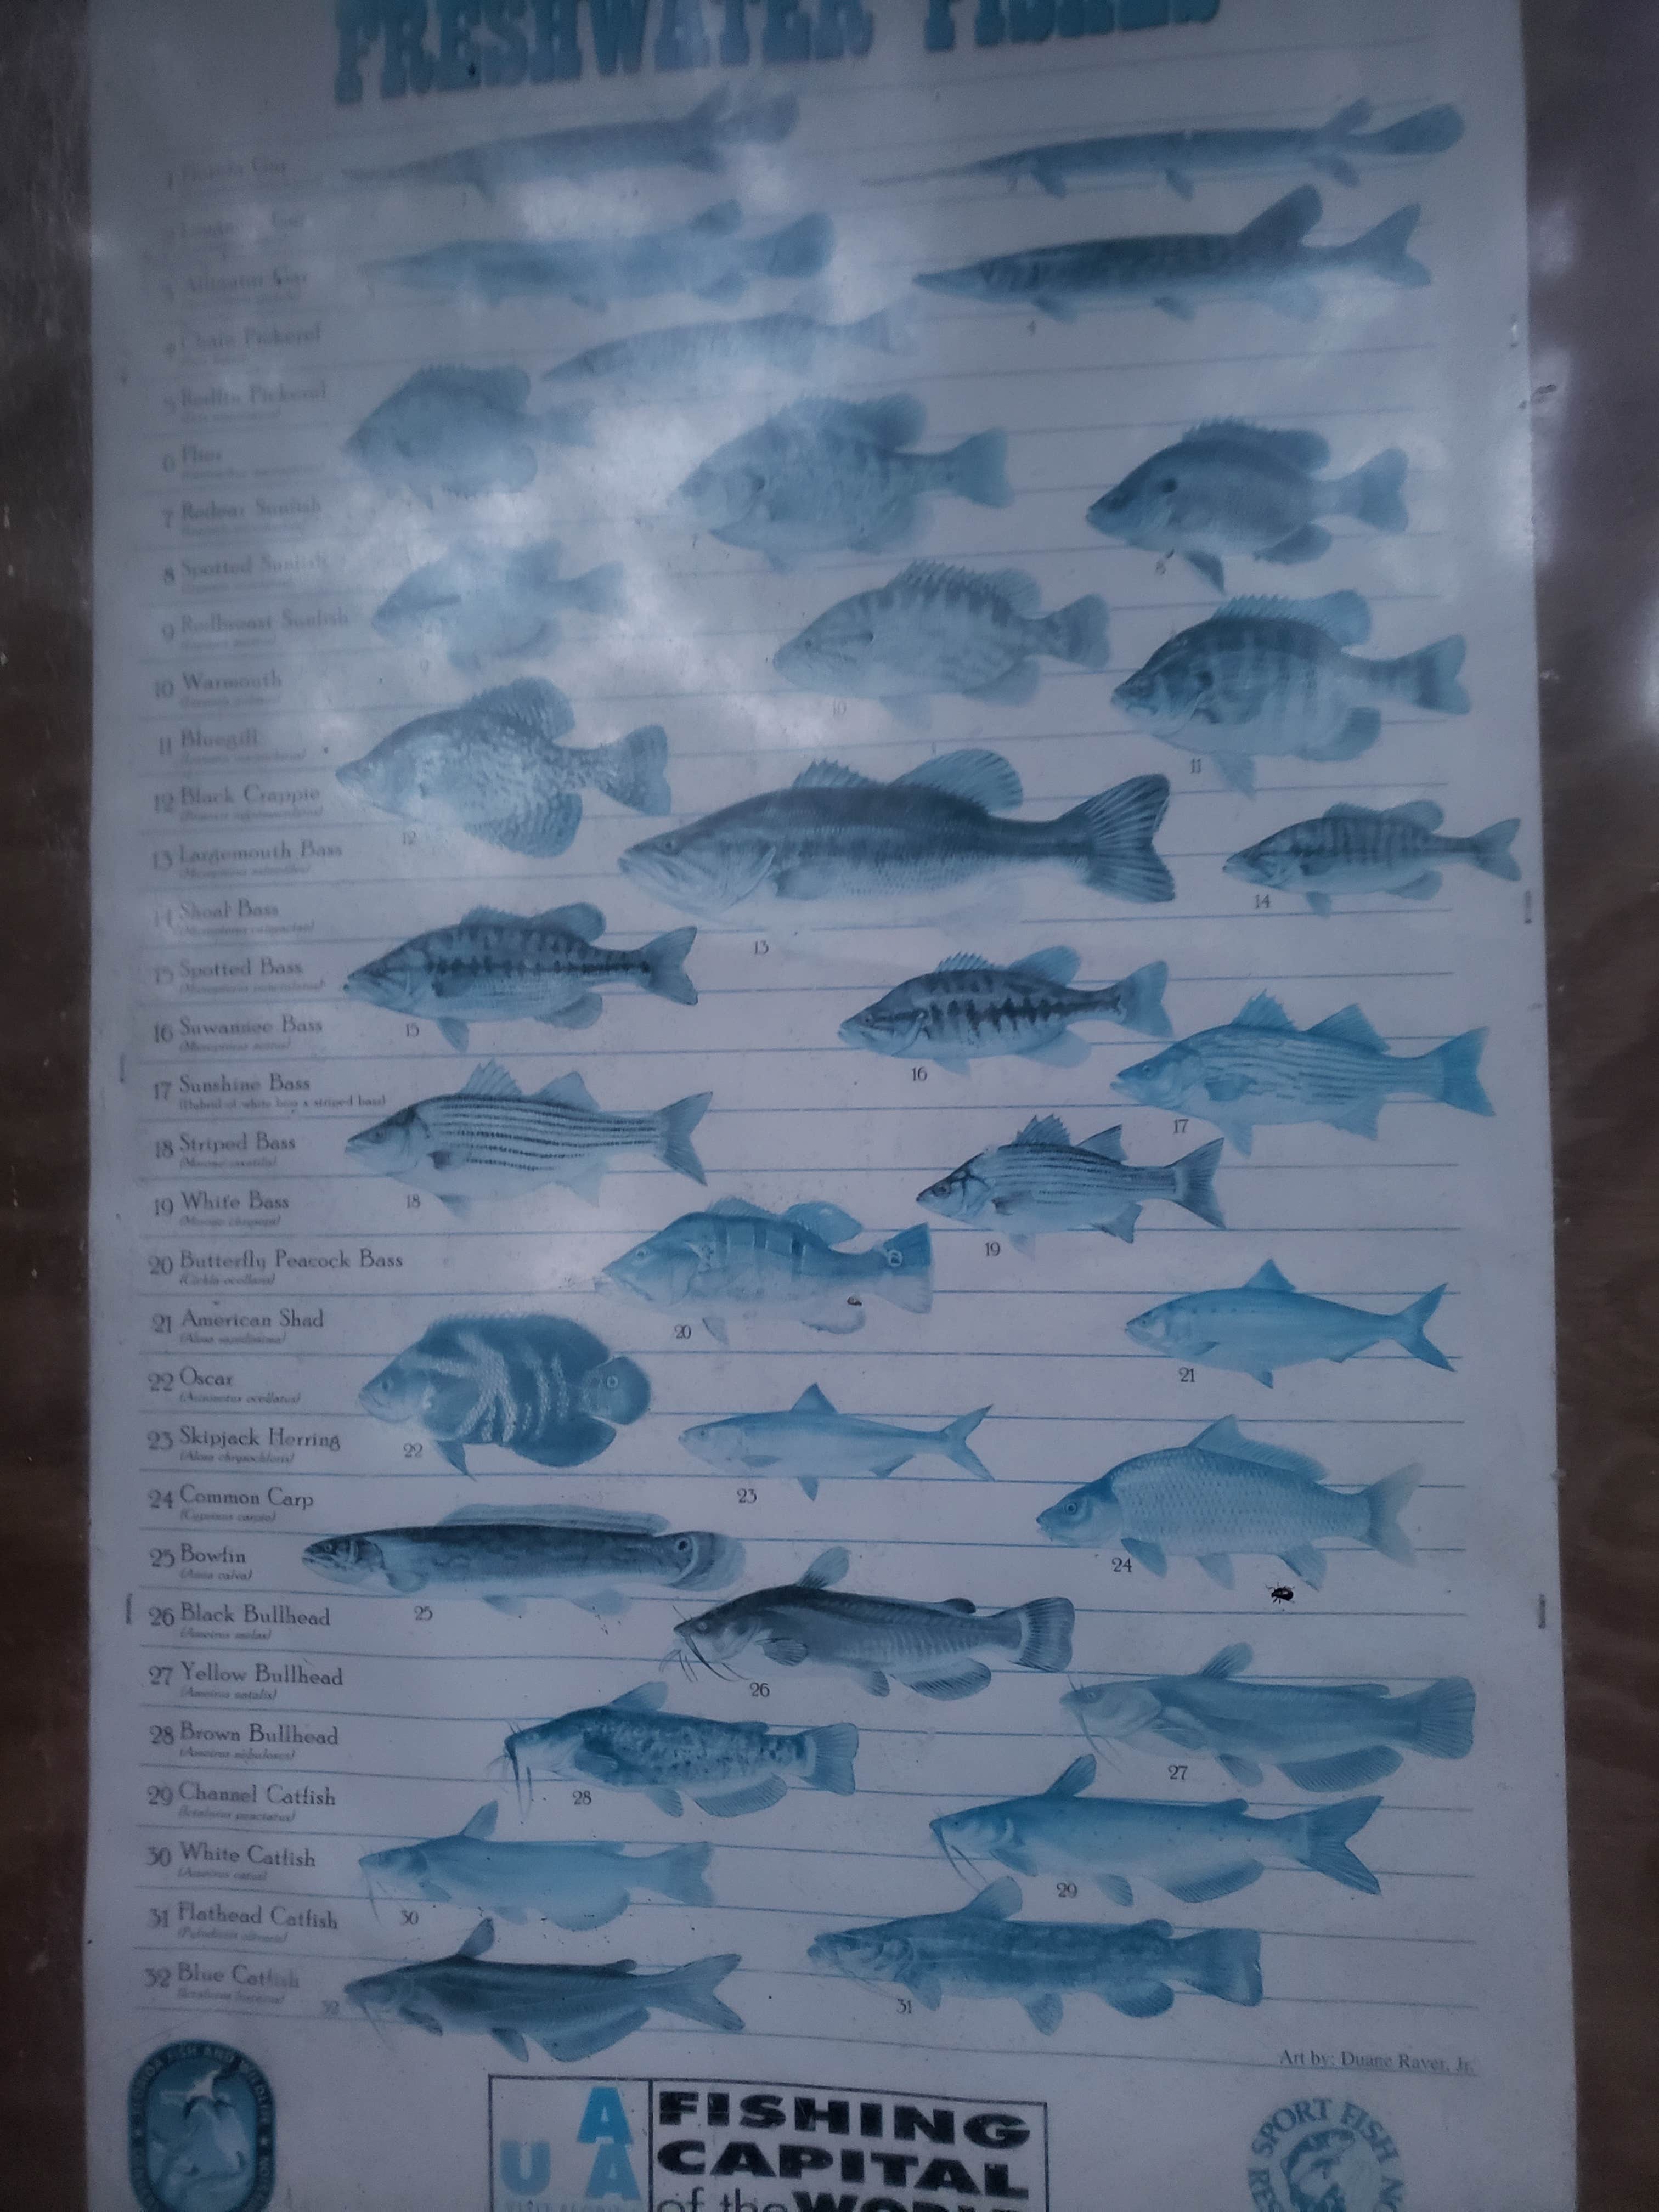 FRESHWATER FISHES
1 Florida Gar
3 Alligator Gar
4 Chain Pickerel
5 Redfin Pickerel
6 Flier
7 Redear Sunfish
8 Spotted Sunfish
9 Redbreast Sunfish
10 Warmouth
11 Bluegill
12 Black Crappie
13 Largemouth Bass
14 Shoal Bass
15 Spotted Bass
16 Suwannee Bass
17 Sunshine Bass
(Hybrid of white bass x striped bass)
18 Striped Bass
19 White Bass
(Morone chrysops)
20 Butterfly Peacock Bass
(Cichla ocellaris)
21 American Shad
(Alosa sapidissima)
22 Oscar
(Astronotus ocellatus)
23 Skipjack Herring
(Alosa chrysochloris)
24 Common Carp
(Cyprinus carpio)
25 Bowfin
(Amia calva)
26 Black Bullhead
(Ameirus melas)
27 Yellow Bullhead
(Ameirus natalis)
28 Brown Bullhead
(Ameirus nebulosus)
29 Channel Catfish
(Ictalurus punctatus)
30 White Catfish
(Ameirus catus)
31 Flathead Catfish
32 Blue Catfish
4
8
9
10
11
12
13
14
15
16
17
18
19
20
21
22
23
24
25
26
27
28
29
30
31
32
Art by: Duane Raver, Jr.
FISH AND WILDLIFE
A
U A
FISHING
CAPITAL
of the WORLD
SPORT FISH